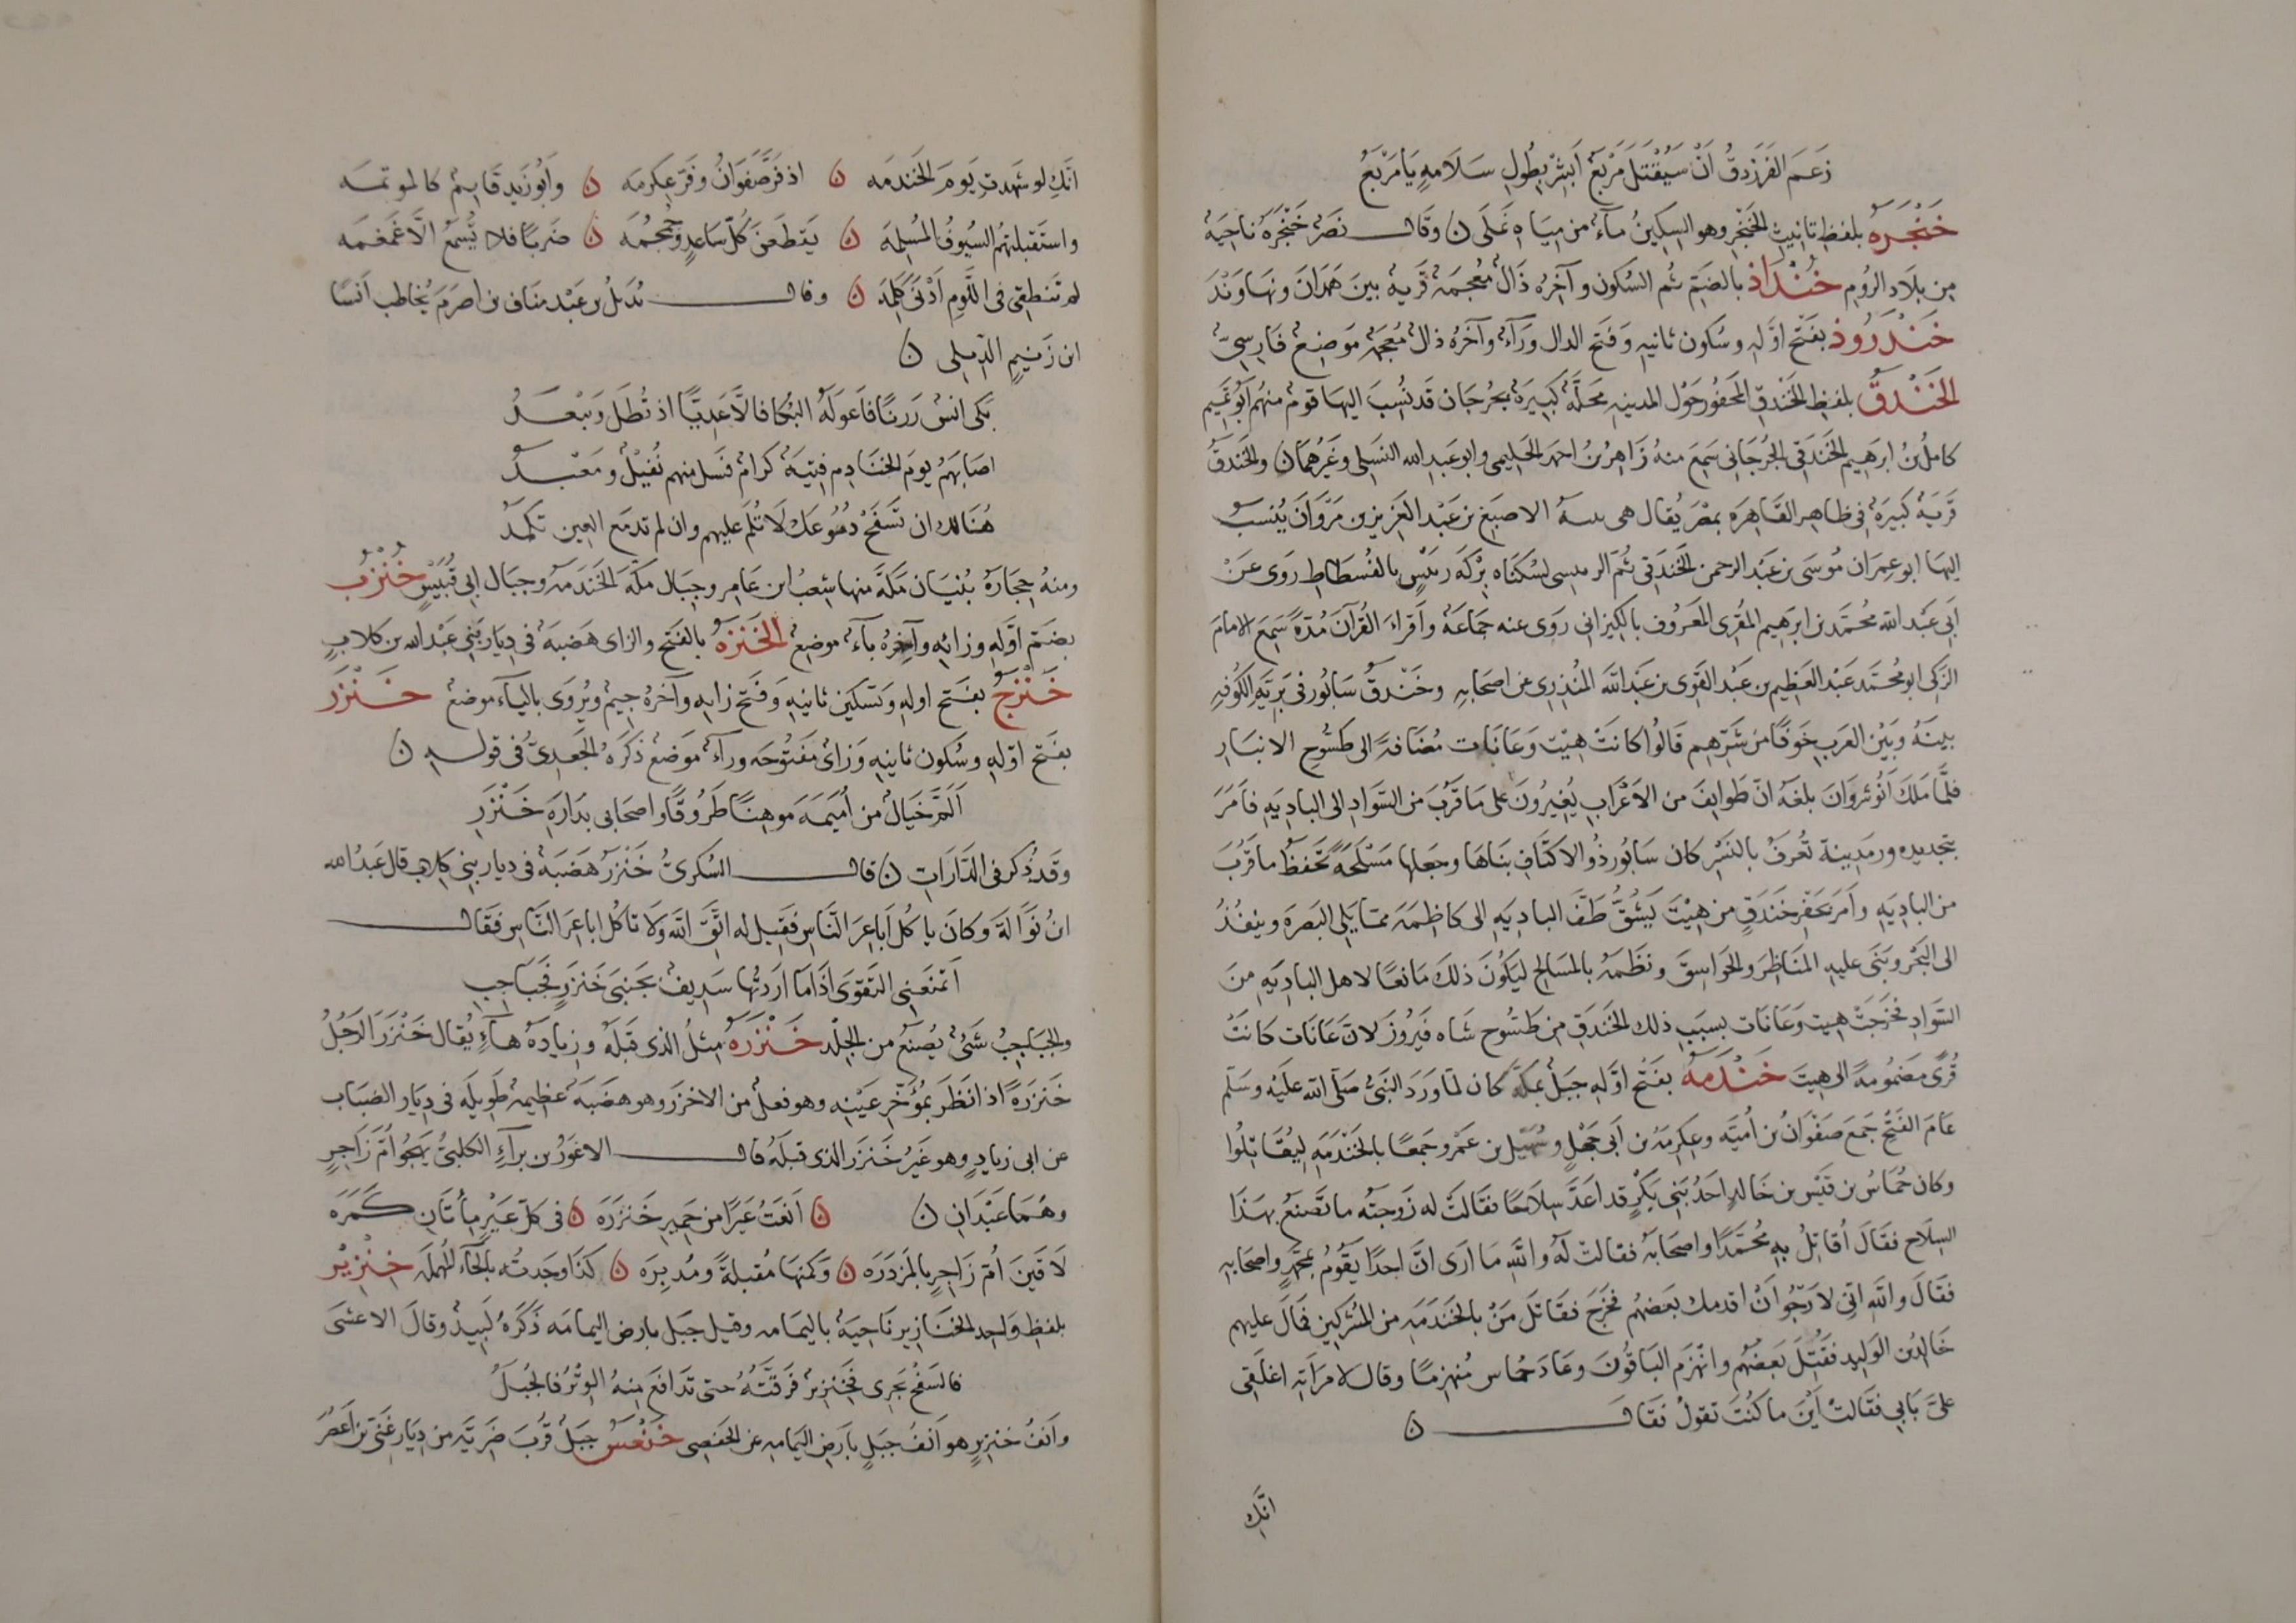 زَعَمَ الفَرَزدقُ اَنْ سَيُقْتَلَ مَرْبَعٌ اَبْشِرْ بِطُولِ سَلَامَةٍ يَا مَرْبَعُ
خَنْجَرَهُ بلفظِ تانيثِ الخَنْجَرِ وهو السكينُ مآءٌ من مِيَاهِ نَمَلَى ن وقال نصَرٌ خَنْجَرَهُ ناحِيَةٌ
مِن بلَادِ الرُومِ خُنْدَاذ بالضَمِّ ثم السُكونِ وآخِرُه ذَالٌ مُعجمَةٌ قَرْيهٌ بينَ هَمَذَانَ ونهَاوَنْدَ
خَنْدَرُوذ بفَتْحِ اوَّلِهِ وسُكونِ ثانيهِ وَفَتحِ الدال ورَآءٌ وآخرُه ذالٌ مُعجَمَةٌ مَوضِعٌ فَارِسيٌّ
الخَنْدَقُ بلفظِ الخَنْدقِ المَحفُورِ حَوْل المدينهِ محَلّةٌ كَبيَرةٌ بجُرجَان قَد نُسِبَ اليهَا قومٌ منهُم ابُو تَميمٍ
كاملُ بنُ ابرَهِيم الخَنَدَقِيُّ الجُرجَانِيُّ سَمِعَ منهُ زَاهِرُ بنُ احمَد الحَليمِى وابو عَبدِ الله النسَيلى وغَيرُهمَا ن والخَندَقُ
قَريَةٌ كَبيَرةٌ فى ظاهِر القَاهِرَةِ بمصْرَ يُقال هى الاصبَغ بن عَبْد العَزِيز بن مَرْوَانَ يُنسبُ
اليهَا ابو عِمرَان مُوسَى بن عَبْد الرحمن الخَندَقى ثُمَّ الرميسى لسُكنَاه بِرْكَة رَميْسٍ بالفُسطَاطِ رَوى عَنْ
اَبى عَبْد الله محُمَّد بن ابرَهِيم المُقرى المعَروُف بالكِيزانى رَوَى عنه جمَاعَةٌ واَقرَاءَ القُرآنَ مُدّةً سَمِعَ الامامَ
الزَكى ابو محُمَّد عَبْد العَظِيم بن عَبْد القَوِى بن عَبْد اللهَ المُنذِرى عن اصحَابهِ وخَنْدَقُ سَابُور فى بَرِيَّةِ الكُوفهِ
بينَهُ وَبَيْن العَرَب خَوفًا من شَرّهم قَالُوا كانَتْ هِيْت وَعَانَات مُضَافةً الى طَسُّوحِ الانبَارِ
فلَمَّا مَلَكَ اَنُوشروَانَ بلغَهُ انّ طَوايفَ من الاَعْرَابِ يُغِيرُونَ على مَا قَرُبَ من السَّوَادِ الى البَادِيَهِ فاَمَرَ
بتجديدهِ ورمَدينة تُعرفُ بالنَسْر كان سَابُور ذُو الاكتَافِ بنَاهَا وجَعلها مَسْلَحَةً تَحَفظُ ما قَرُبَ
من البادِيَهِ وأَمَرَ بحَفر خَندَقٍ من هِيْتَ يَشُقُّ طَفَّ البادِيَهِ الى كاظِمَهَ ممّا يَلِى البَصرَةَ وينفُذُ
الى البَحْر وبَنَى عليهِ المنَاظِرَ والجَوَاسِقَ ونظَمَهُ بالمَسَالحِ ليَكُونَ ذلكَ مَانعًا لاهل البادِيَهِ مِنَ
السَوَادِ فخَرَجَتْ هيت وَعَانَات بسبَب ذلك الخَندَقِ مِن طَسُّوحِ شَاه فَيرُوزَ لانَّ عَانَات كانَتْ
قُرًى مَضمُومَةً الى هِيتَ خَنْدَمَهُ بفَتْح اوَّلهِ جَبَلٌ بمكَّةَ كان لمّا وَرَدَ النبَىُّ صَلَّى اللّه عَليهِ وسَلّم
عَامَ الفَتْحِ جَمعَ صَفْوَانُ بن أُميَّه وعِكرمَهُ بن اَبى جَهلٍ وسُهَيل بن عَمْرٍو جَمعًا بالخَنْدَمَهِ لِيُقَاتِلُوا
وكان حُمَاسُ بن قَيْس بن خَالدٍ احَدُ بَنِى بَكْرٍ قد اعَدَّ سِلَاحًا فقَالَتْ له زَوجتُه ما تَصنَعُ بهَذَا
السِلاحِ فقَالَ اُقاتِلُ بهِ محُمَّدًا واصحَابَهُ فقالتْ لَهُ واللهِ مَا اَرَى انّ احدًا يَقُومُ بمحَمَّدٍ واصحَابهِ
فقَالَ واللهِ اِنّى لاَرجُو اَنْ اُخدمك بعَضَهُم فخَرَجَ فقَاتَلَ مَنْ بالخَندَمَهِ من المُشْركِينَ فمَالَ عليهِم
خَالدُ بن الوَلِيد فقَتَلَ بَعضَهُم وانهَزَم البَاقُونَ وعَادَ حُماس مُنهزِمًا وقال لامرَاتِه اغلَقِى
علىَّ بَابِى فقَالتْ اَيْنَ ما كنُتَ تقولُ فقَال ن
انّكِ
انّكِ لو شَهدتِ يَومَ الخَندمَه ن اذ فَرَّ صَفوَانُ وفَرَّ عِكرِمَه ن وَابُو زَيدٍ قَايمٌ كالمُوتمَه
واستَقبلتهُمُ السُيوفُ المُسْلِمَة ن يَقطَعنَ كُلَّ سَاعدٍ وجُمجُمَه ن ضَربًا فلا تُسمَعُ الّا غَمغمَه
لم تَنطِقى فى اللّومِ اَدْنَى كَلِمَة ن وقال بُدَيلُ بن عَبْد مَنَاف بن اصرَمَ يُخاطب اَنسًا
ابن زَنِيمٍ الدّيلى ن
بَكى انسٌ رَزنًا فاَعوَلَهُ البُكَا فالَّا عَدِيًّا اذ تُطَلَ وتبْعَدُ
اصَابَهُم يومَ الخنَادِم فِتيَةٌ كرامٌ فسَل منهم نُفَيْلٌ ومَعْبدُ
هُنَالك ان تَسفَحْ دُمُوعك لَا تُلَمْ عليهم وان لم تدمَع العين تكمَدُ
ومنهُ حِجَارَةُ بُنيَان مَكَّة منها شِعبُ ابن عَامِر وجِبَال مكّهَ الخَندَمَهُ وجبَال ابى قُبَيْسٍ خُنْزُب
بضَمّ اوّلِهِ وزائِه وآخِرُه بآءٌ موضِعٌ الخَنْزَهُ بالفَتْحِ والزاى هَضبَهٌ فى دِيَارِ بَنِى عَبْد الله بن كلابٍ
خَنْزَجُ بفَتحِ اولهِ وتَسكين ثانيهِ وَفَتحِ زايه وآخرُه جيمٌ ويُروَى باليآءِ موضِعٌ خَنْزَر
بفَتحِ اوّلهِ وسُكون ثانيهِ وَزاىٌ مَفتُوحَه ورآءٌ مَوضعٌ ذَكَرَهُ الجَعدِىُّ فى قولهِ ن
اَلَمَّ خَيَالٌ من أُمَيْمَهَ مَوهِنًا طَرُوقًا واصحَابى بدَارَةِ خَنْزَرِ
وقَد ذُكر فى الدَّارَاتِ ن قال السُكرىُّ خَنْزَرُ هَضَبَةٌ فى ديار بَنِى كلابٍ قال عَبدُ الله
ابنُ نَوَّالَةَ وكانَ ياكُل اَباعِرَ النّاس فقيل له اتّقِ الله ولا تاكُل اباعِرَ النَّاس فقَال
اَتمنَعُنِى التَقوَى اذَا مَا اَرَدتُها سَدِيفٌ بجَنبَى خَنزَرٍ فجَبَاجِبِ
والجبَاجِبُ شَىٌ يُصنَعُ من الجِلْد خَنْزَرَهُ مِثلُ الذى قبَلَهُ وزيادَةُ هآءٍ يُقال خَنْزَرَ الرَجُلُ
خَنزَرَةً اذا نَظَرَ بمُؤخَّرِ عَيْنِه وهو فنعلٌ من الاخزَر وهو هضَبَةٌ عَظيمهٌ طَوِيلَه فى دِيَار الضبَاب
عن ابى زيادٍ وهو غَيرُ خَنزَر الذى قبلَهُ قال الاعْوَرُ بن برآءِ الكلبىُّ يَهجُو اُمَّ زَاجِرٍ
وهُمَا عَبْدَانِ ن ن اَنعَتُ عَيرًا من حَمِيرِ خَنزَرَه ن فى كلّ عَيْرٍ مِأتَان كَمَرَه
لَاقَينَ اُمَّ زَاجِرٍ بالمَزدَرَه ن وكُمنهَا مُقبلةً ومُدبرَه ن كذَا وجَدتُه بالحآءِ المُهمَلَه خِنْزِيْر
بلفظِ وَاحِد الخنَازِير نَاحِيَةٌ باليمَامه وقيل جَبَل بارض اليمامَه ذَكَرَهُ لَبيدٌ وقالَ الاعشَى
فالسَفحُ يَجرِى فخِنزيرٌ فرَقَتُهُ حتى تدَافَعَ منِهُ الوِتْرُ فالحُبَلُ
وَاَنفُ خنزيرٍ هو اَنفُ جبَلٍ بارَض اليمَامهِ عن الحَفصِى خَنْعَسُ جبَلٌ قُربَ ضَريَّه من دِيَار غَنىِّ بن اَعصُر